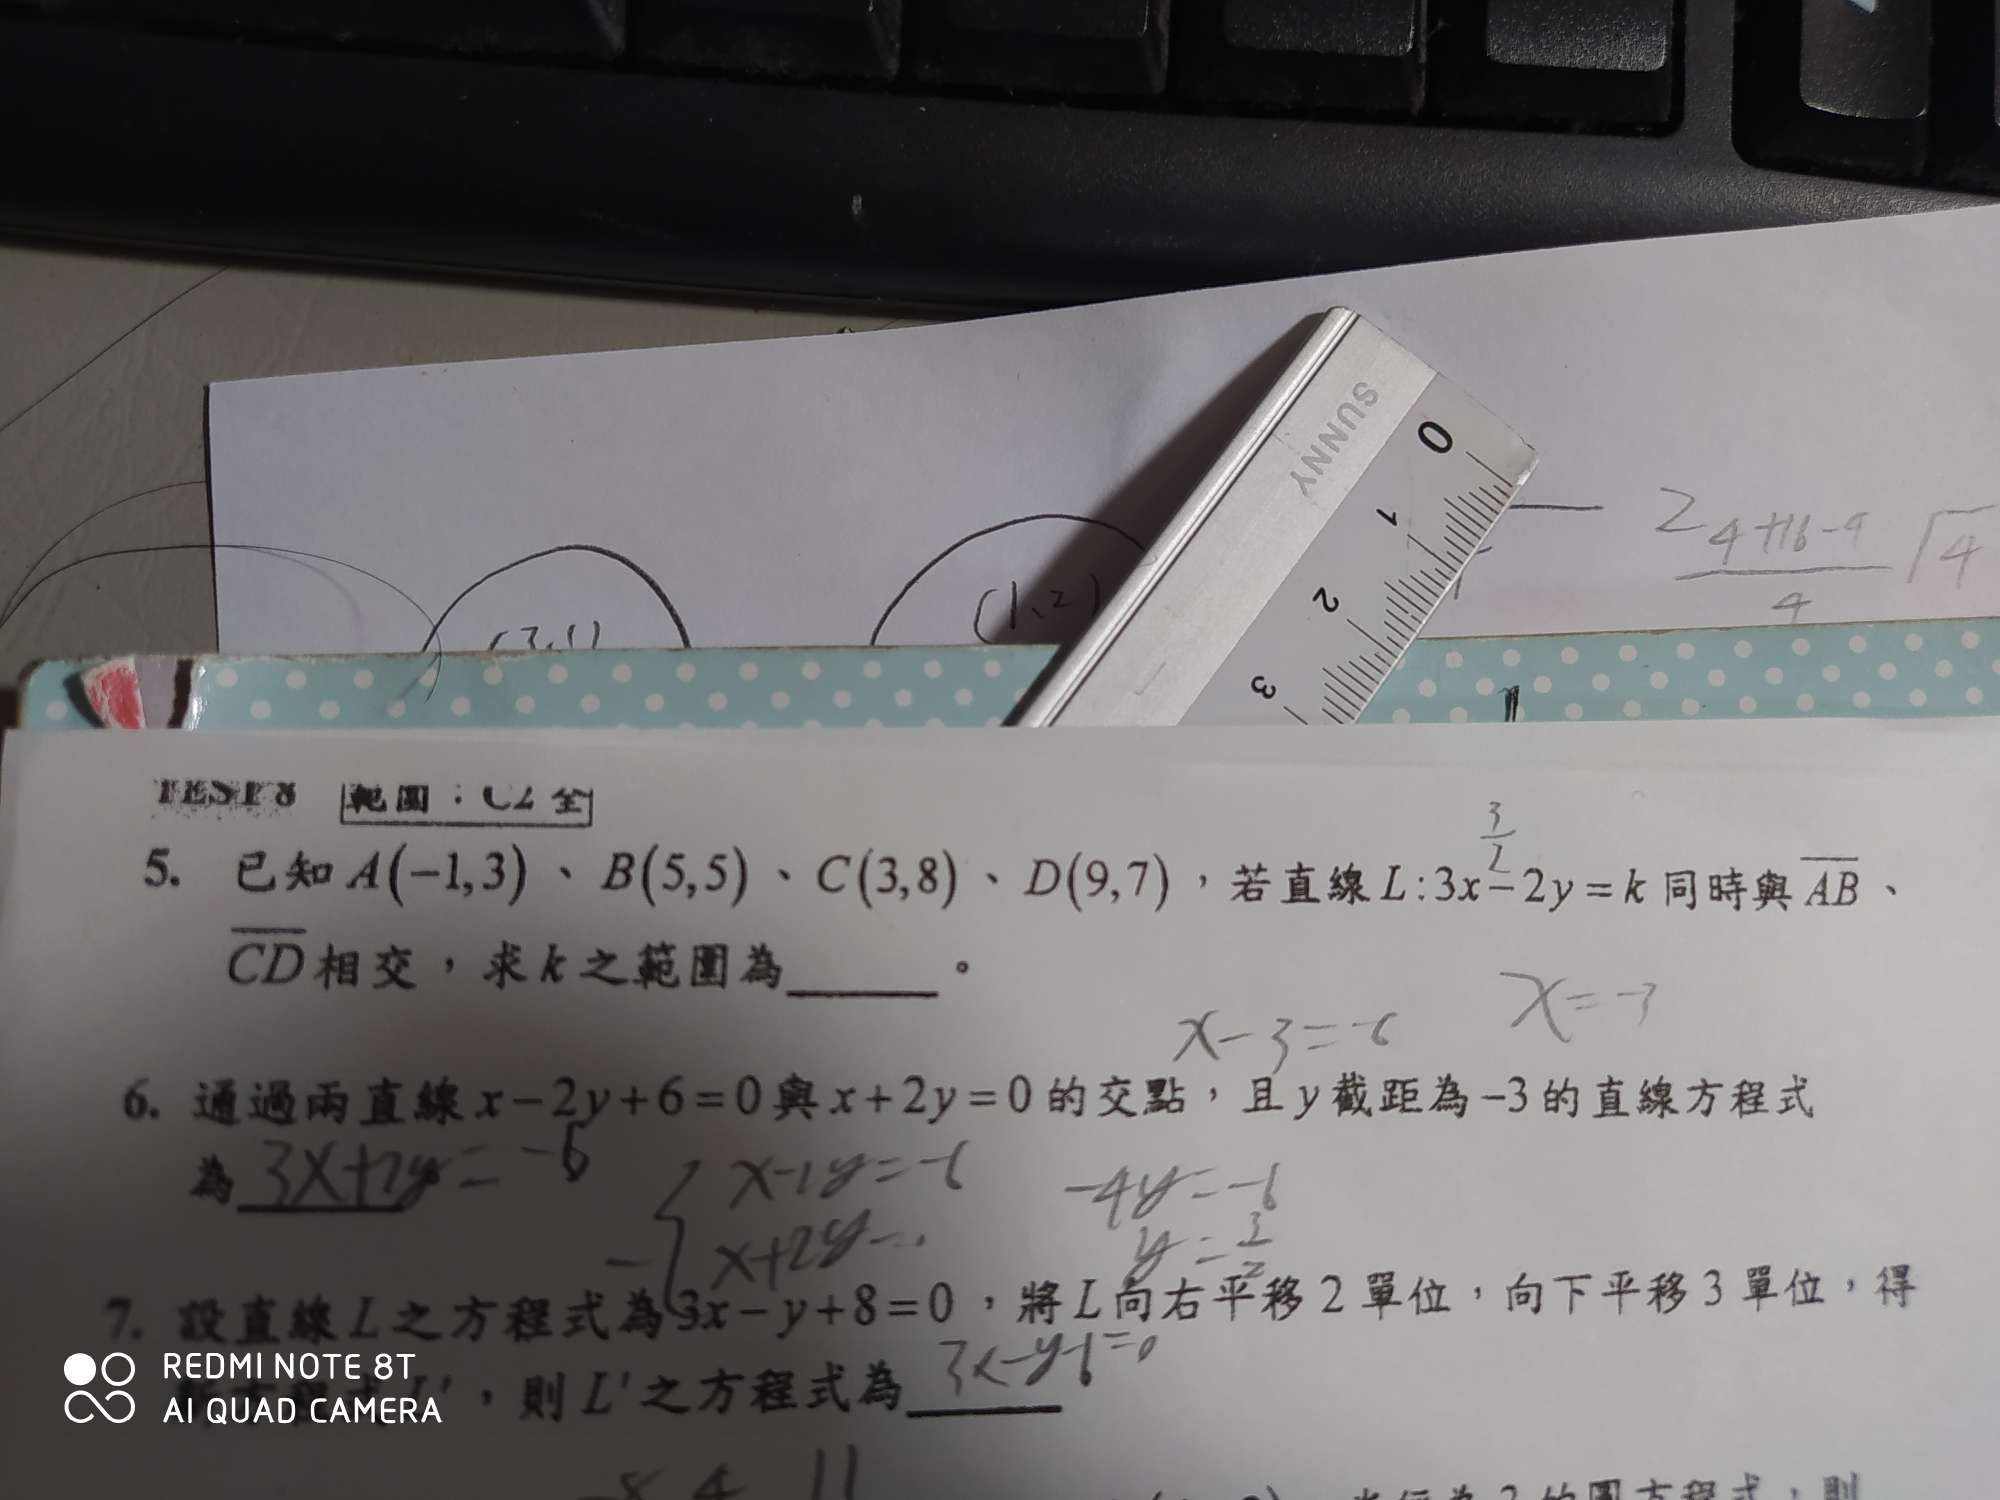 SUNNY
0
1
2
3
(1,2)
4+16-9
4
TEST 8 範圍：C2 全
3
2
5. 已知 A(−1,3)、B(5,5)、C(3,8)、D(9,7)，若直線 L:3x−2y=k 同時與 AB、
CD 相交，求 k 之範圍為______。
x=-3
x-3=-6
6. 通過兩直線 x−2y+6=0 與 x+2y=0 的交點，且 y 截距為 −3 的直線方程式
為 3x+2y=-6
x-2y=-6
-4y=-6
x+2y=
y=3/2
7. 設直線 L 之方程式為 3x−y+8=0，將 L 向右平移 2 單位，向下平移 3 單位，得
L'，則 L' 之方程式為 3x-y-1=0
REDMI NOTE 8T
AI QUAD CAMERA
的圓方程式，則